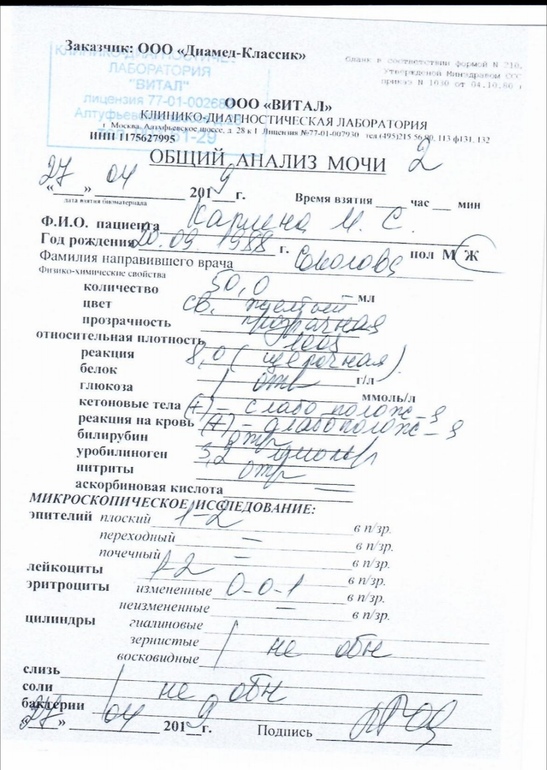 Заказчик: ООО «Диамед-Классик»
бланк в соответствии формой N 210,
Утвержденой Минздравом ССС
приказ N 1030 от 04.10.80 г
ЛАБОРАТОРИЯ
"ВИТАЛ"
лицензия 77-01-00268
ООО «ВИТАЛ»
КЛИНИКО-ДИАГНОСТИЧЕСКАЯ ЛАБОРАТОРИЯ
г. Москва, Алтуфьевское шоссе, д. 28 к 1 Лицензия №77-01-007930
ИНН 1175627995
ОБЩИЙ АНАЛИЗ МОЧИ 2
«27» 04 2019 г. Время взятия час мин
дата взятия биоматериала
Ф.И.О. пациента И. С.
Год рождения 20.09.1988 г. пол М Ж
Фамилия направившего врача Соколова
Физико-химические свойства
количество 50,0 мл
цвет св. желтый
прозрачность прозрачная
относительная плотность
реакция 8,0 (щелочная)
белок г/л
глюкоза отр ммоль/л
кетоновые тела (+) – слабо полож-я
реакция на кровь (+) – слабо полож-я
билирубин отр
уробилиноген 3,2
нитриты отр
аскорбиновая кислота —
МИКРОСКОПИЧЕСКОЕ ИССЛЕДОВАНИЕ:
эпителий плоский 1-2 в п/зр.
переходный — в п/зр.
почечный — в п/зр.
лейкоциты 1-2 в п/зр.
эритроциты измененные 0-0-1 в п/зр.
неизмененные — в п/зр.
цилиндры гиалиновые
зернистые не обн
восковидные
слизь
соли не обн
бактерии
«27» 04 2019 г. Подпись